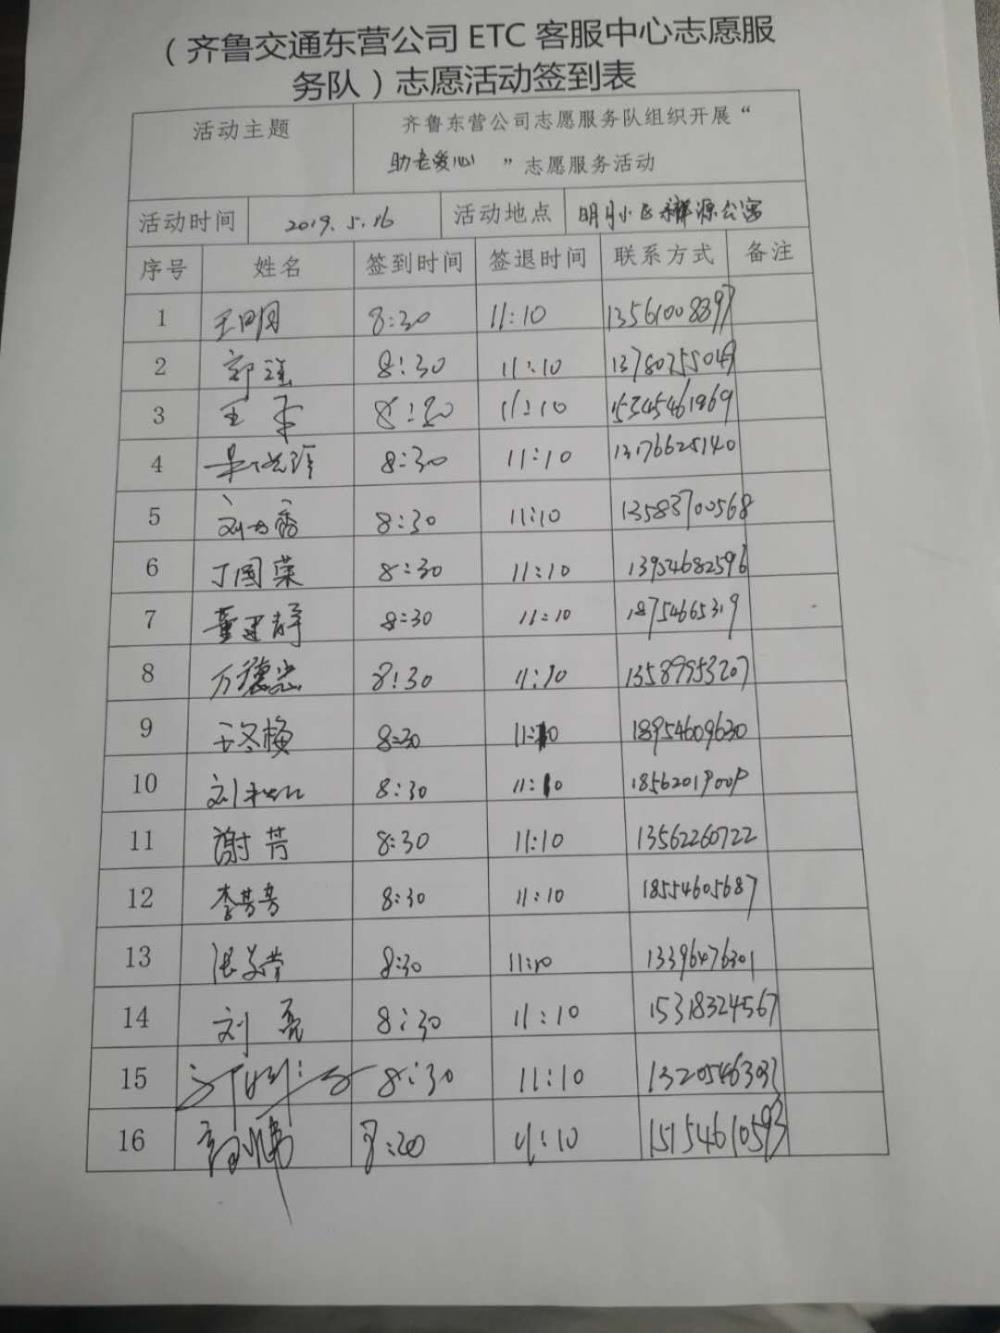 （齐鲁交通东营公司 ETC 客服中心志愿服
务队）志愿活动签到表
活动主题 齐鲁东营公司志愿服务队组织开展“
助老爱心 ”志愿服务活动
活动时间 2019.5.16 活动地点 明月小区祥源公寓
序号 姓名 签到时间 签退时间 联系方式 备注
1 王明月 8:30 11:10 13561008397
2 郭瑶 8:30 11:10 13780755049
3 王 8:30 11:10 15345461969
4 8:30 11:10 13176625140
5 8:30 11:10 13583700568
6 丁国荣 8:30 11:10 13954682596
7 董建静 8:30 11:10 18754665319
8 万德忠 8:30 11:10 13589953207
9 王冬梅 8:30 11:10 18954609630
10 刘 8:30 11:10 18562019009
11 谢芳 8:30 11:10 13562260722
12 李芳芳 8:30 11:10 18554605687
13 张 8:30 11:10 13396476301
14 刘亮 8:30 11:10 15318324567
15 8:30 11:10
16 11:10 15154610593